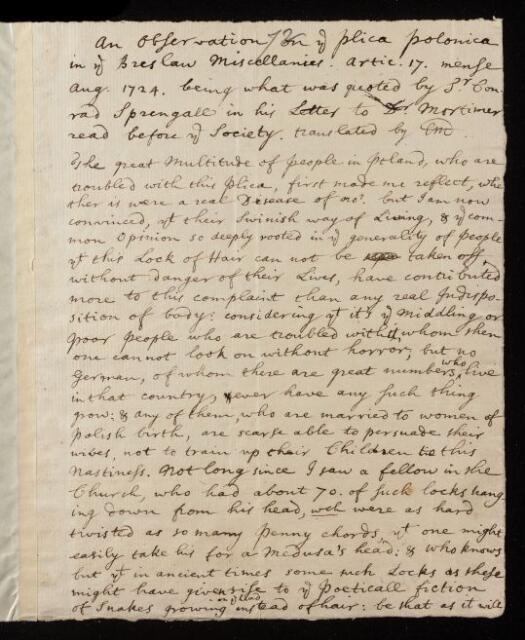 An Observation on yͤ plica polonica
in yͤ Breslaw Miscellanies. Artic. 17. mense
Aug. 1724. being what was quoted by Sͬ Con-
rad Sprengall in his Letter to Dͬ Mortimer
read before yͤ Society. translated by CM
The great Multitude of people in Poland, who are
troubled with this Plica, first made me reflect, whe
ther is were a real Disease or noͭ. but I am now
convinced, yͭ their Swinish way of Living, & yͤ com-
mon Opinion so deeply rooted in yͤ generality of People
yͭ this Lock of Hair can not be taken off,
without danger of their Lives, have contributed
more to this complaint than any real Indispo-
sition of body: considering yͭ it's yͤ Middling or
poor People who are troubled with it, whom then
one can not look on without horror, but no
German, of whom there are great numbers, who live
in that country, never have any such thing
grow: & any of them, who are married to women of
Polish birth, are scarse able to persuade their
wives, not to train up their Children to this
Nastiness. Not long since I saw a fellow in the
Church, who had about 70. of such locks hang
ing down from his head, wch were as hard
twisted as so many Penny chords, yͭ one might
easily take his for a Medusa's head: & who knows
but yͭ in ancient times some such Locks as these
might have given rise to yͤ Poeticall fiction
of Snakes growing on yͤ head instead of hair: be that as it will